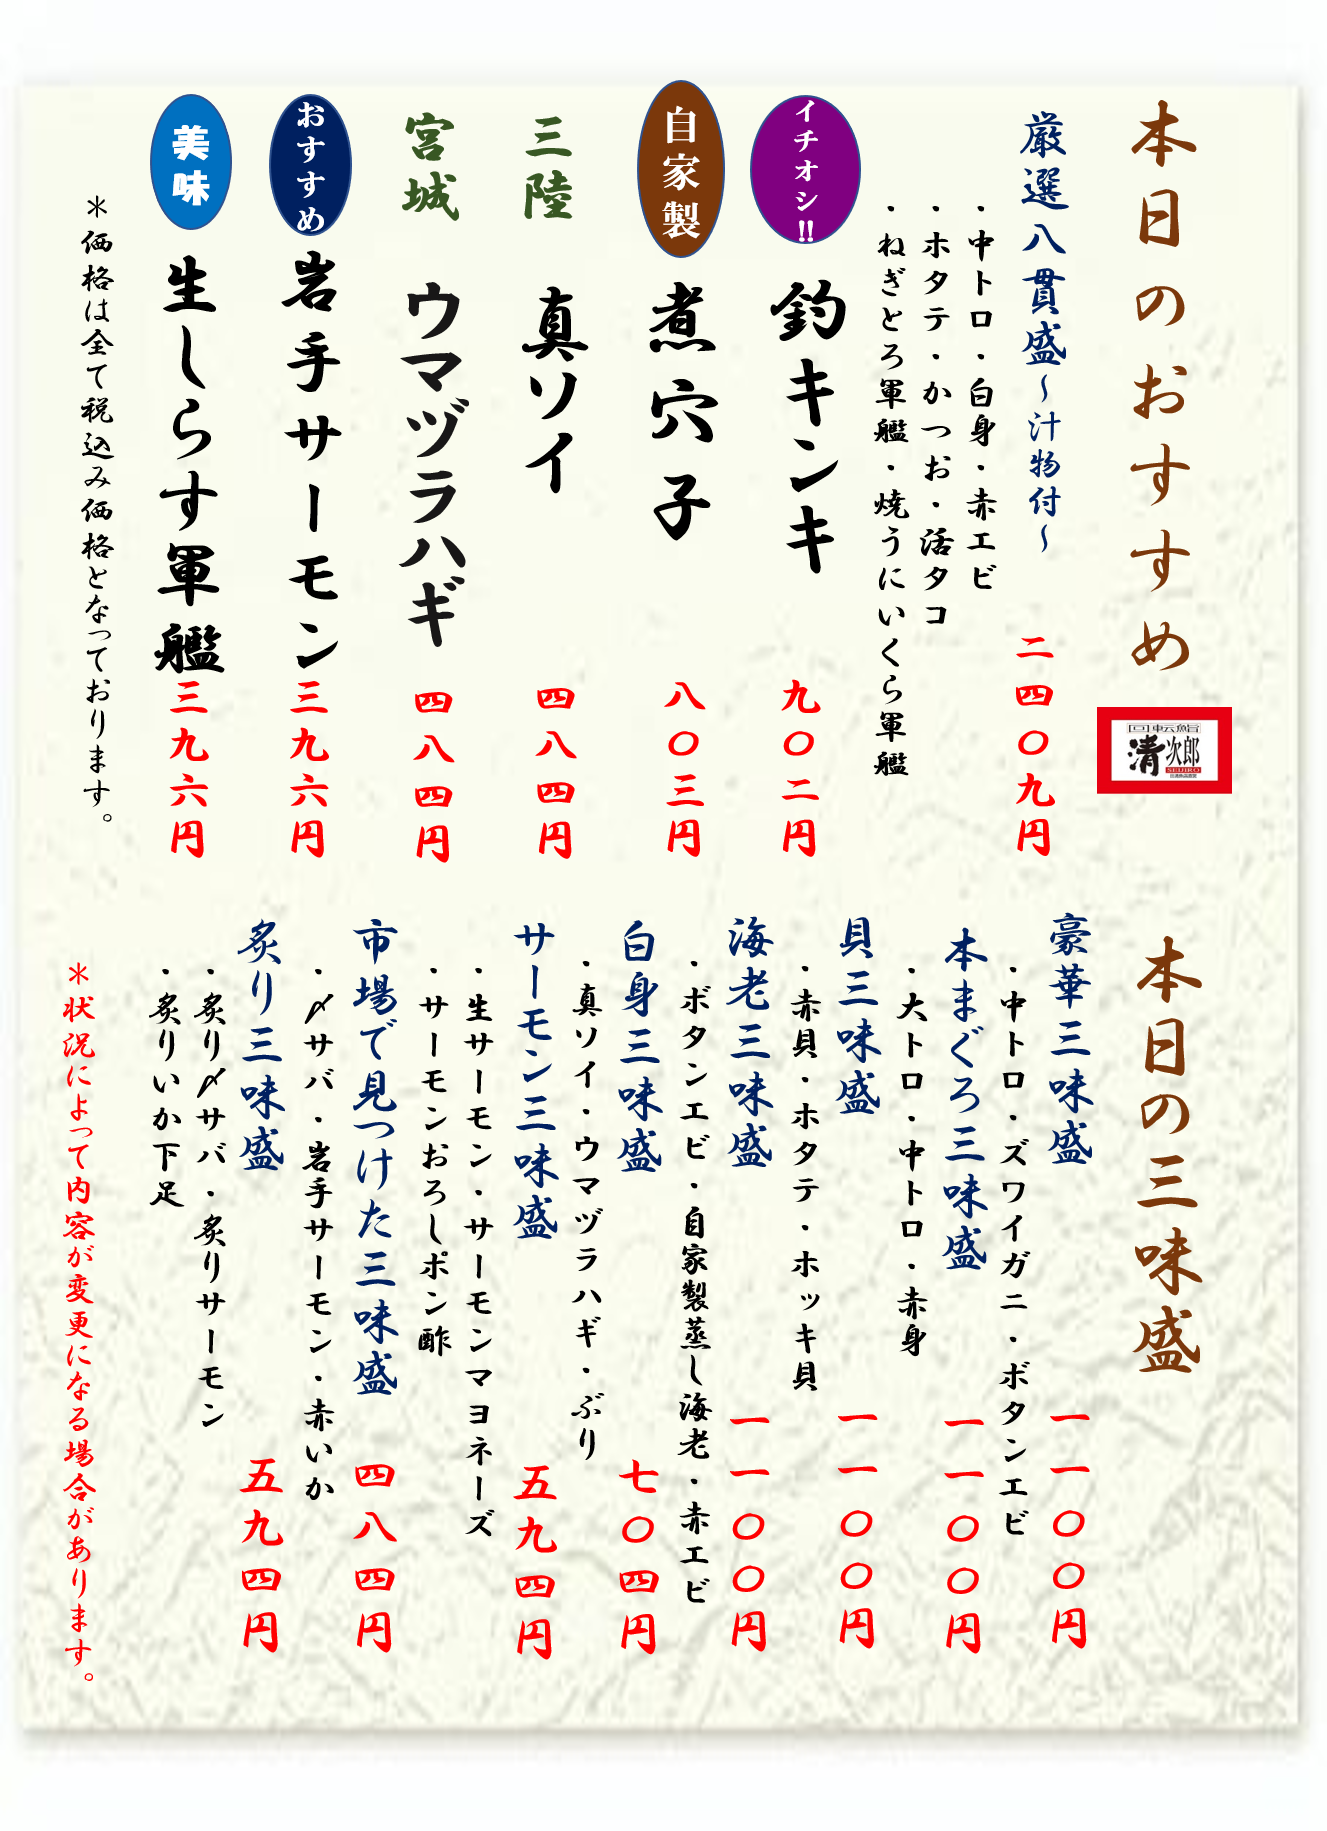 本日のおすすめ
回転鮨
清次郎
SEIJIRO
厳選八貫盛～汁物付～
二四〇九円
・中トロ・白身・赤エビ
・ホタテ・かつお・活タコ
・ねぎとろ軍艦・焼うにいくら軍艦
イチオシ!!
釣キンキ
九〇二円
自家製
煮穴子
八〇三円
三陸
真ソイ
四八四円
宮城
ウマヅラハギ
四八四円
おすすめ
岩手サーモン
三九六円
美味
生しらす軍艦
三九六円
＊価格は全て税込み価格となっております。
本日の三味盛
豪華三味盛
一一〇〇円
・中トロ・ズワイガニ・ボタンエビ
本まぐろ三味盛
一一〇〇円
・大トロ・中トロ・赤身
貝三味盛
一一〇〇円
・赤貝・ホタテ・ホッキ貝
海老三味盛
一一〇〇円
・ボタンエビ・自家製蒸し海老・赤エビ
白身三味盛
七〇四円
・真ソイ・ウマヅラハギ・ぶり
サーモン三味盛
五九四円
・生サーモン・サーモンマヨネーズ
・サーモンおろしポン酢
市場で見つけた三味盛
四八四円
・〆サバ・岩手サーモン・赤いか
炙り三味盛
五九四円
・炙り〆サバ・炙りサーモン
・炙りいか下足
＊状況によって内容が変更になる場合があります。